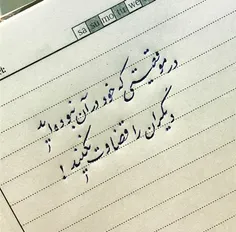 sa su mo tu we
در موقعیتی که خود در آن نبوده‌اید
دیگران را قضاوت نکنید !